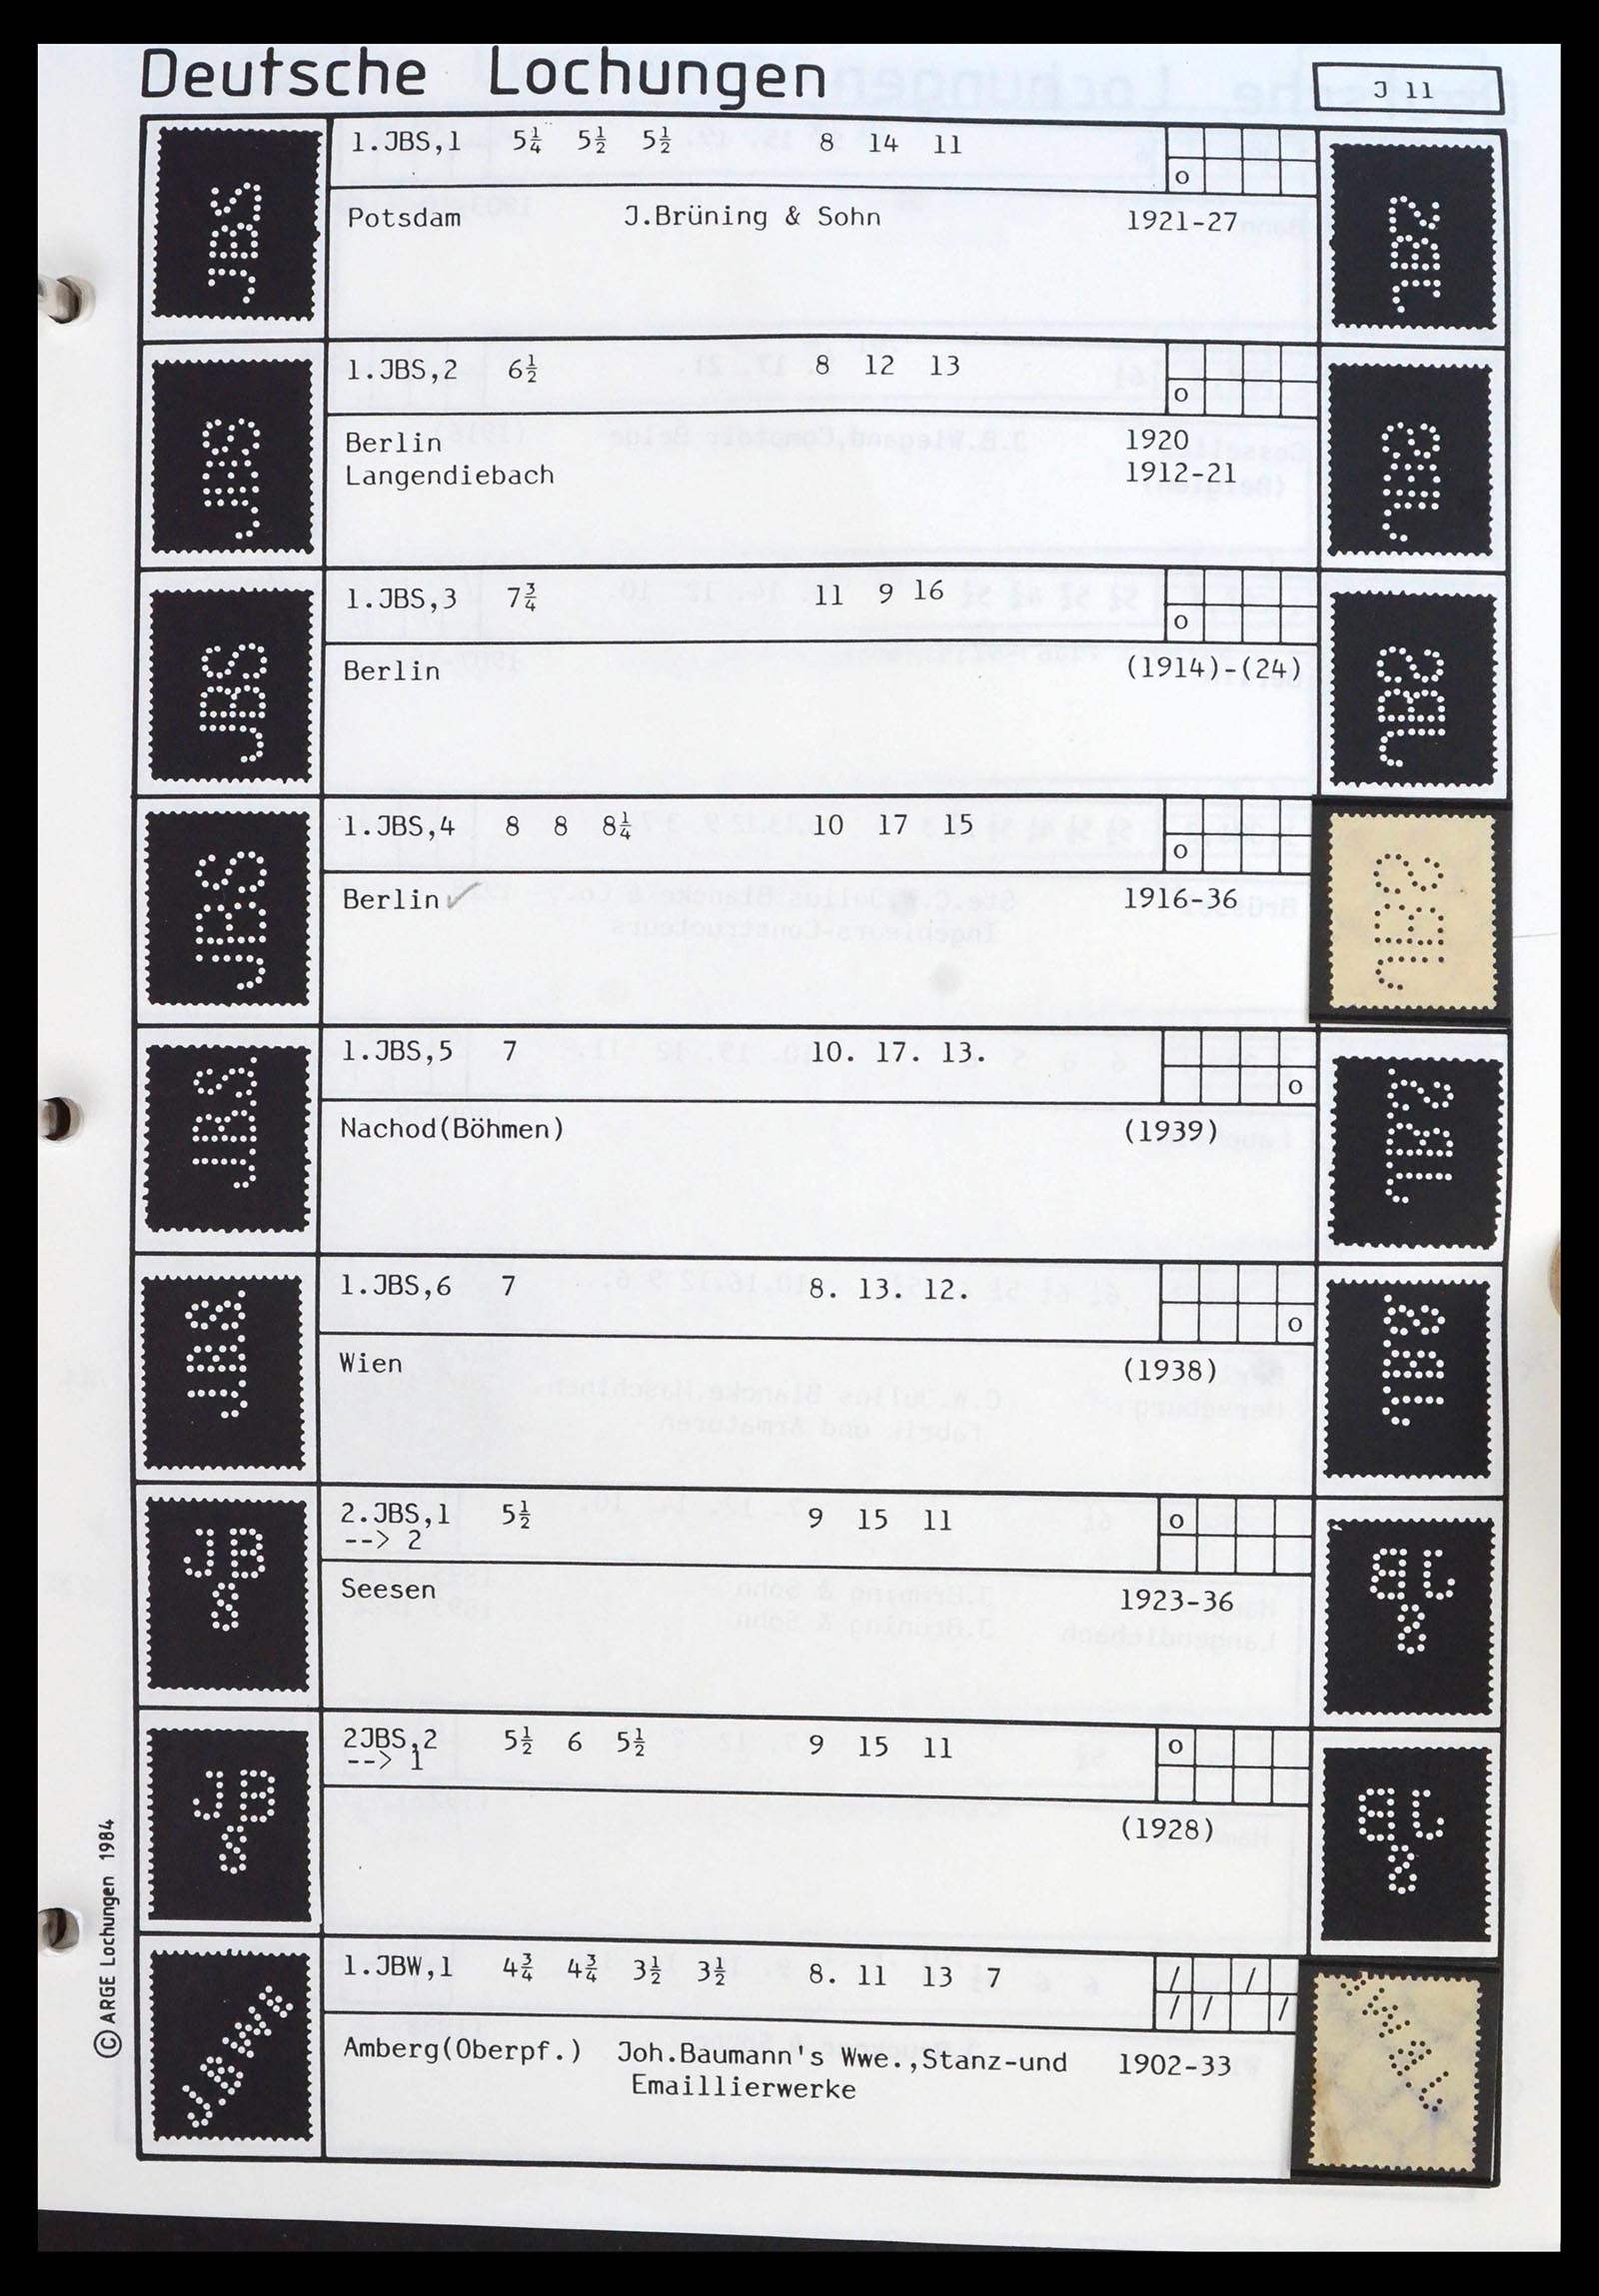 Deutsche Lochungen
J 11
JBS
1.JBS,1 5¼ 5½ 5½ 8 14 11
o
Potsdam J.Brüning & Sohn 1921-27
JBS
JBS
1.JBS,2 6½ 8 12 13
o
Berlin 1920
Langendiebach 1912-21
JBS
JBS
1.JBS,3 7¾ 11 9 16
o
Berlin (1914)-(24)
JBS
JBS
1.JBS,4 8 8 8¼ 10 17 15
o
Berlin✓ 1916-36
JBS
J.B.S.
1.JBS,5 7 10. 17. 13.
o
Nachod(Böhmen) (1939)
J.B.S.
J.B.S.
1.JBS,6 7 8. 13. 12.
o
Wien (1938)
J.B.S.
JB
S
2.JBS,1 5½ 9 15 11
--> 2
o
Seesen 1923-36
JB
S
JB
S
2JBS,2 5½ 6 5½ 9 15 11
--> 1
o
(1928)
JB
S
1.JBW,1 4¾ 4¾ 3½ 3½ 8. 11 13 7
/ /
/ / /
Amberg(Oberpf.) Joh.Baumann's Wwe.,Stanz-und 1902-33
Emaillierwerke
© ARGE Lochungen 1984